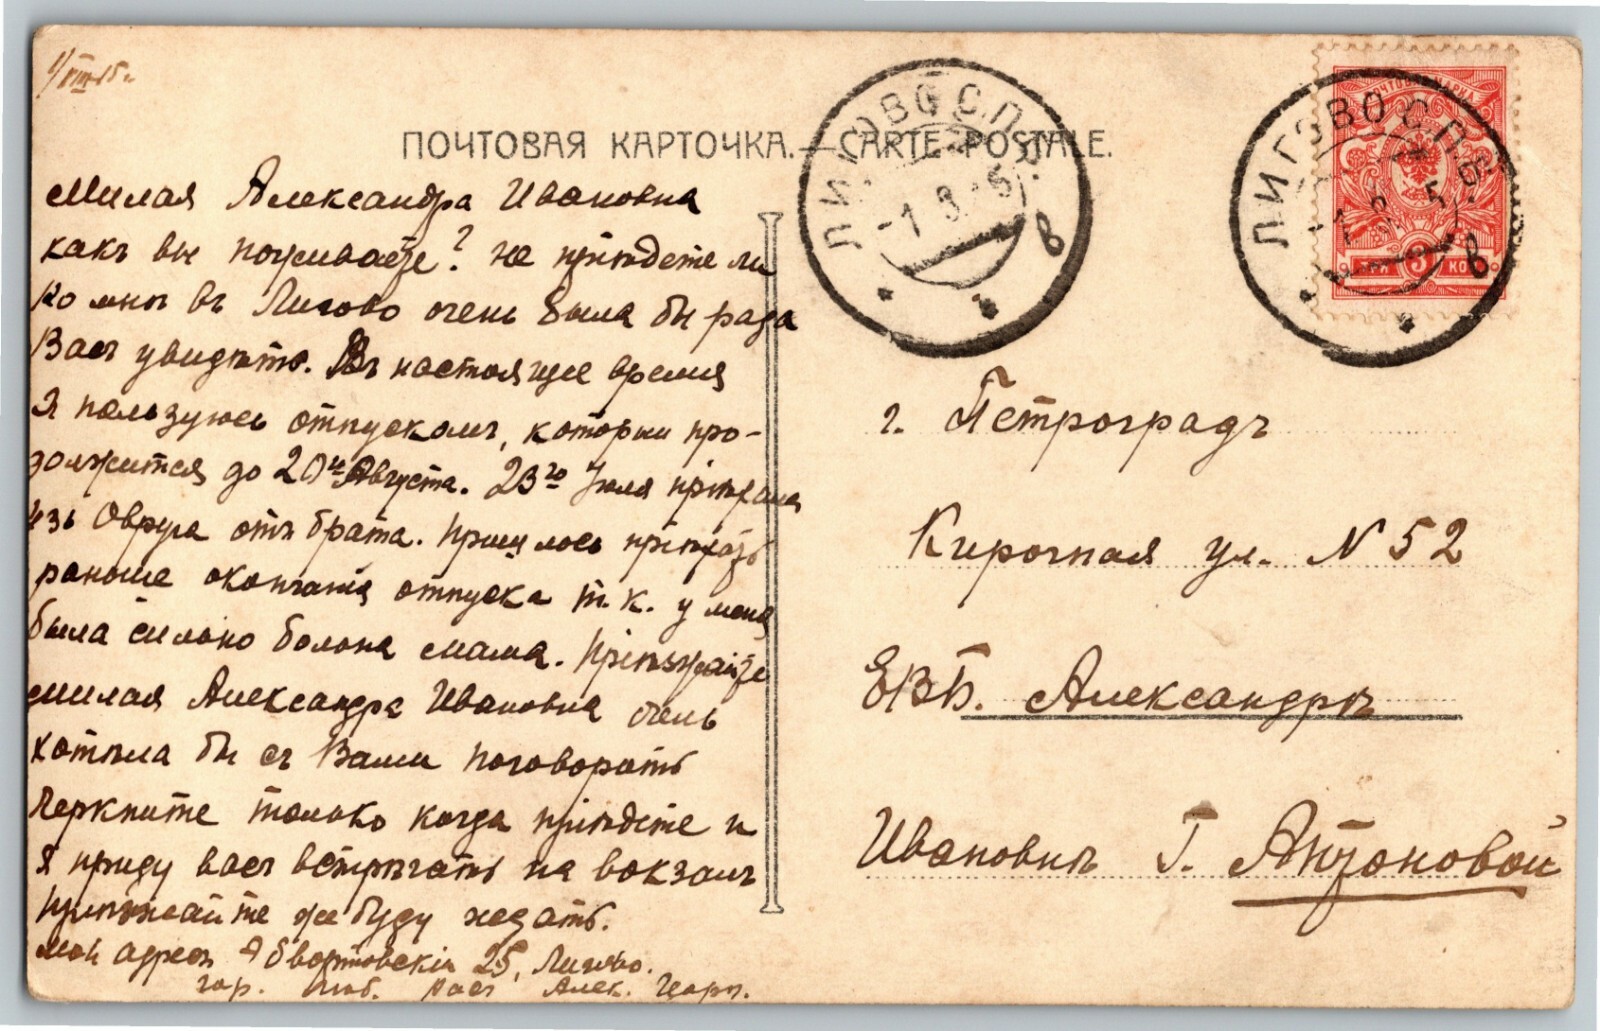 1/VIII-15 г.
ПОЧТОВАЯ КАРТОЧКА. — CARTE POSTALE.
Милая Александра Ивановна
какъ вы поживаете? не пріѣдете ли
ко мнѣ въ Лигово очень была бы рада
Васъ увидѣть. Въ настоящее время
я пользуюсь отпускомъ, которы про-
должится до 20го Августа. 23го Іюля пріѣхала
изъ Овруча отъ брата. Пришлось пріѣхать
раньше окончанія отпуска т. к. у меня
была сильно больна мама. Пріѣзжайте
милая Александра Ивановна очень
хотѣла бы съ Вами поговорать
Черкните только когда пріѣдете и
я приду васъ встрѣчать на вокзалъ
Пріѣзжайте же буду ждать.
мой адресъ 25, Лигово.
гор. Алек.
ЛИГОВО С.П.Б.
-1. 8. 15
в
ЛИГОВО С.П.Б.
в
ПОЧТОВАЯ МАРКА
ТРИ 3 КОП
г. Петроградъ
Кирочная ул. № 52
ЕВБ. Александрѣ
Ивановнѣ Г. Антоновой